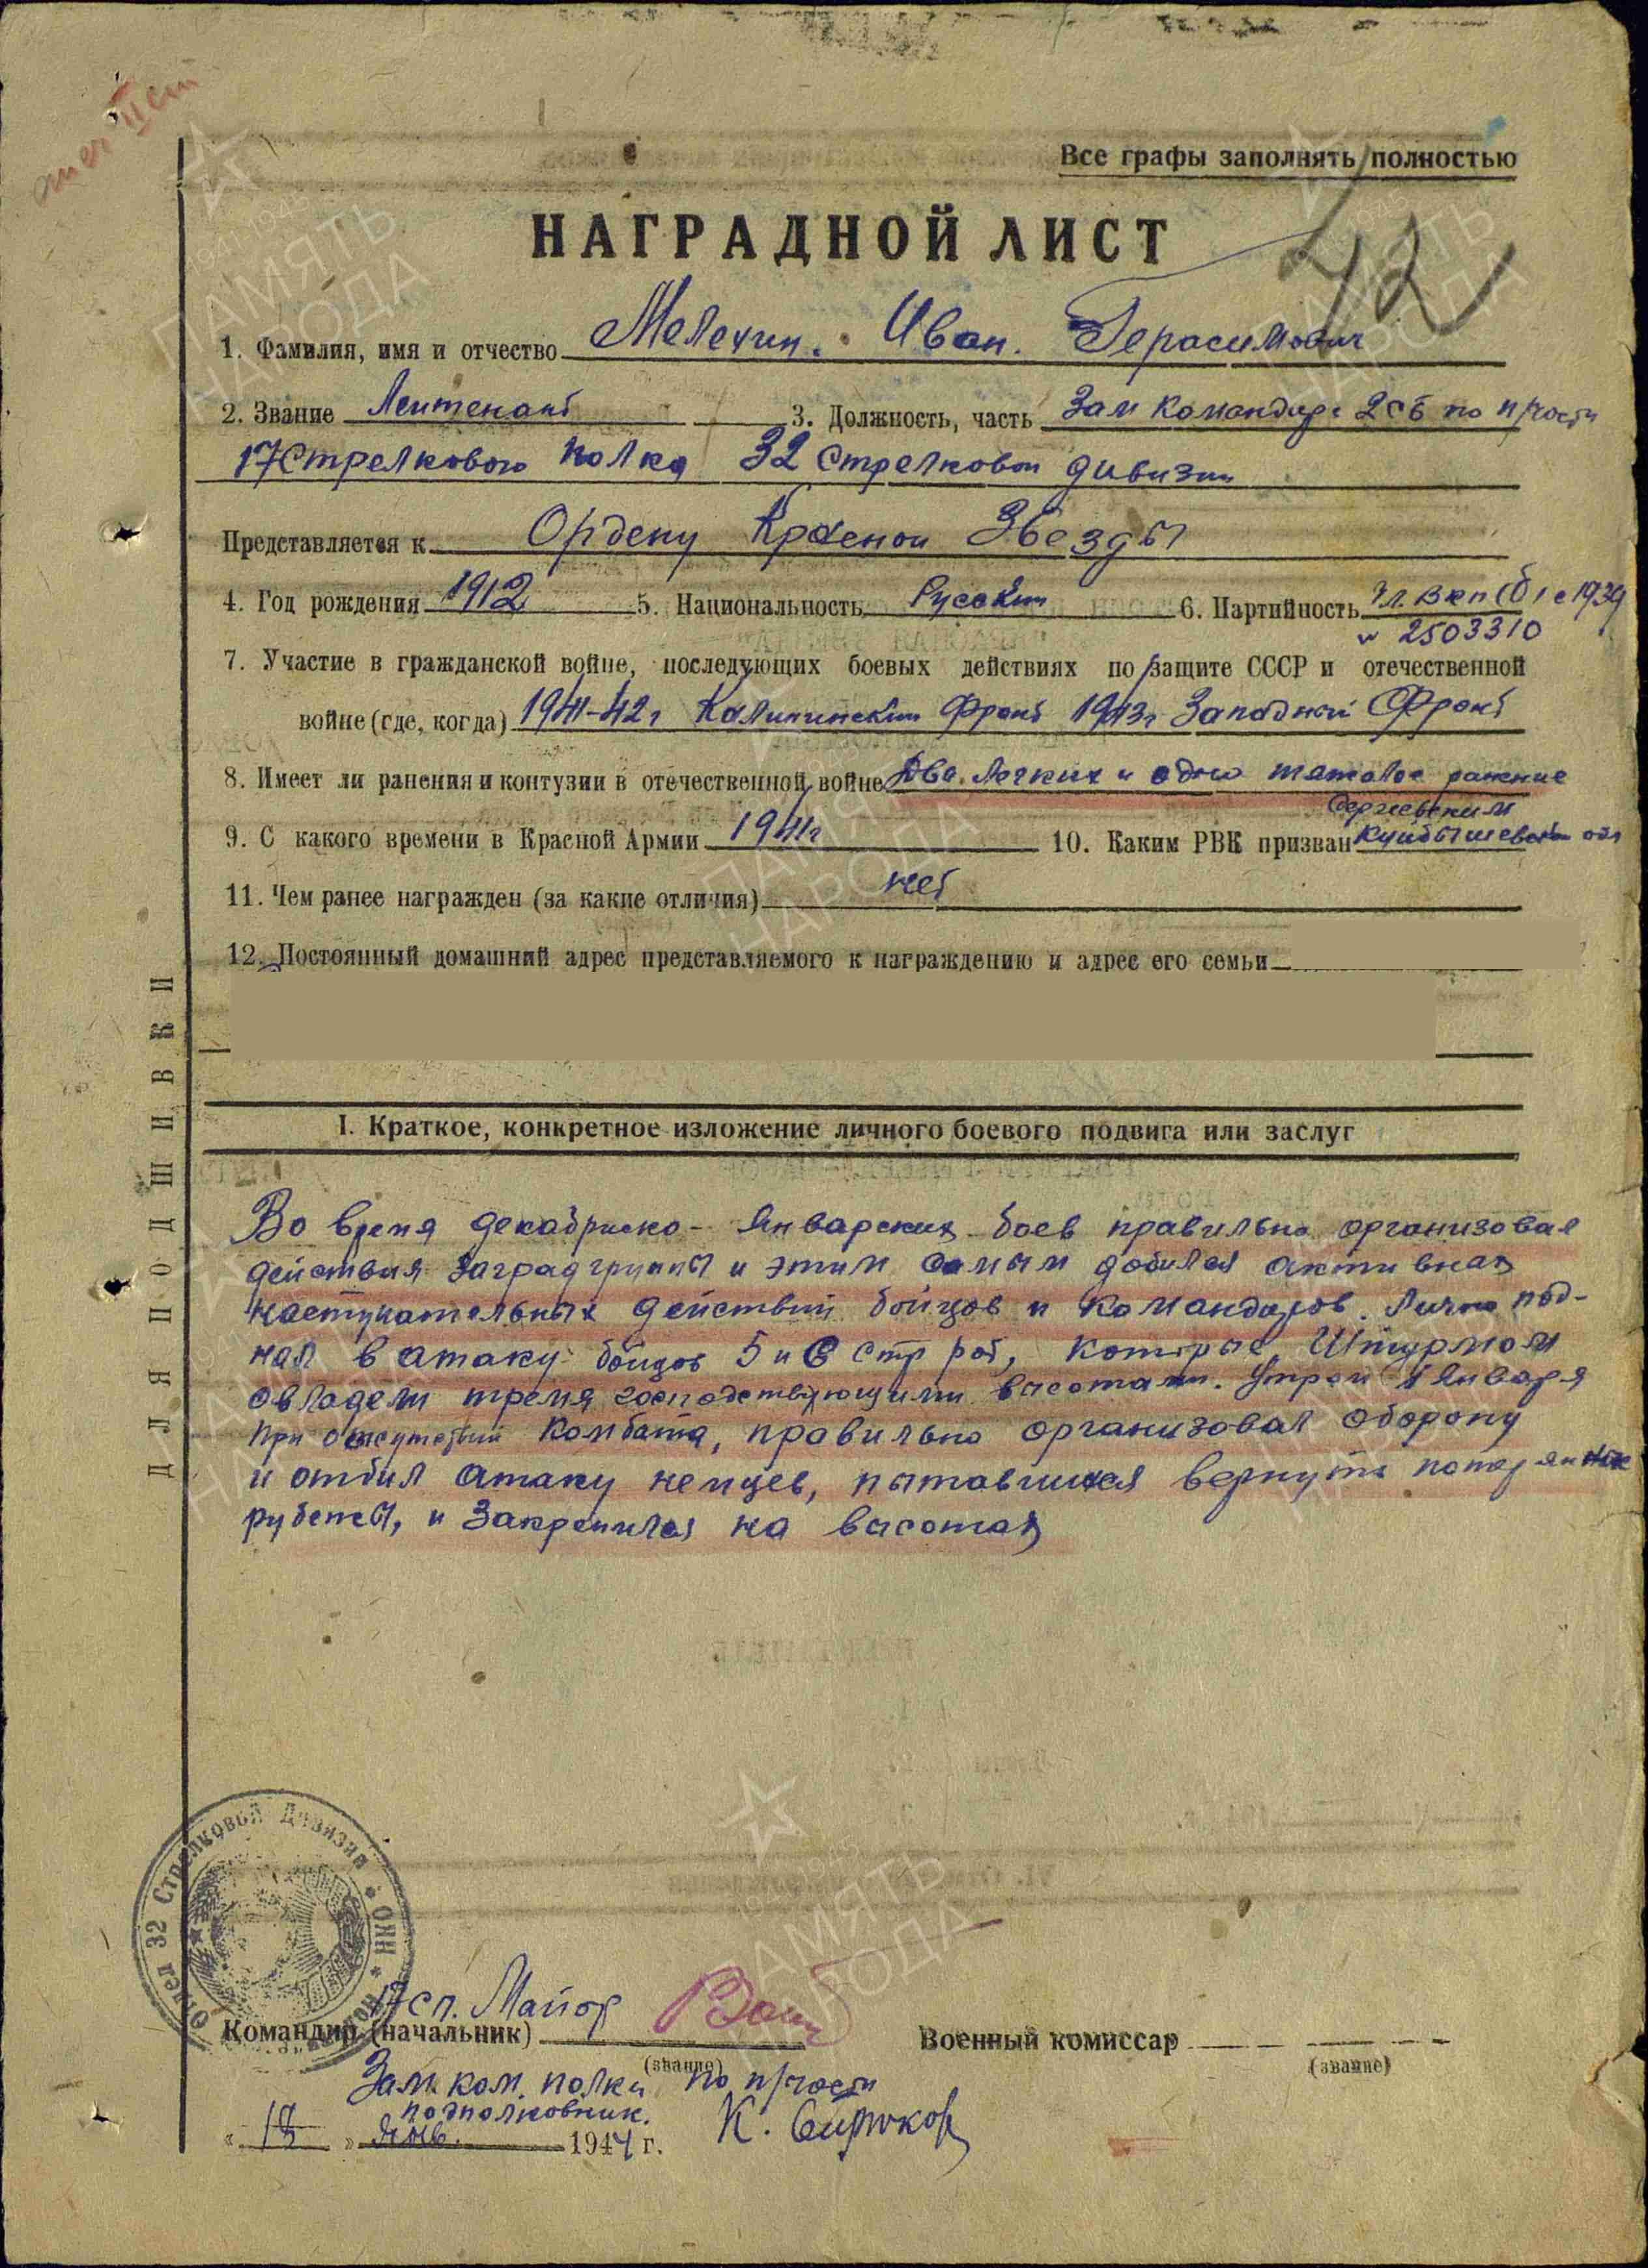 отеч II ст
Все графы заполнять полностью
НАГРАДНОЙ ЛИСТ
42
1. Фамилия, имя и отчество Мелехин. Иван. Герасимович
2. Звание Лейтенант 3. Должность, часть Зам командира 2 сб по п/части
17 Стрелкового полка 32 Стрелковой дивизии
Представляется к Ордену Красной Звезды
4. Год рождения 1912 5. Национальность Русский 6. Партийность Чл. Вкп(б) с 1939
№ 2503310
7. Участие в гражданской войне, последующих боевых действиях по защите СССР и отечественной
войне (где, когда) 1941-42г Калининский Фронт 1943г Западный Фронт
8. Имеет ли ранения и контузии в отечественной войне Два легких и одно тяжелое ранение
9. С какого времени в Красной Армии 1941г 10. Каким РВК призван Сергиевским
Куйбышевской обл
11. Чем ранее награжден (за какие отличия) нет
12. Постоянный домашний адрес представляемого к награждению и адрес его семьи
I. Краткое, конкретное изложение личного боевого подвига или заслуг
Во время декабрьско-Январских боев правильно организовал
действия заградгруппы и этим самым добился активных
наступательных действий бойцов и командиров. Лично под-
нял в атаку бойцов 5 и 6 стр рот, которые, Штурмом
овладели тремя господствующими высотами. Утром 1 Января
при отсутствии Комбата, правильно организовал оборону
и отбил атаку немцев, пытавшихся вернуть потерянные
рубежи, и закрепился на высотах
ДЛЯ ПОДШИВКИ
Отдел 32 Стрелковой Дивизии * НКО *
17 сп. Майор
Командир (начальник) Военный комиссар
(звание) (звание)
Зам. ком. полка по п/части
подполковник. К. Бирюков
« 18 » Янв. 1944 г.
ПАМЯТЬ
НАРОДА